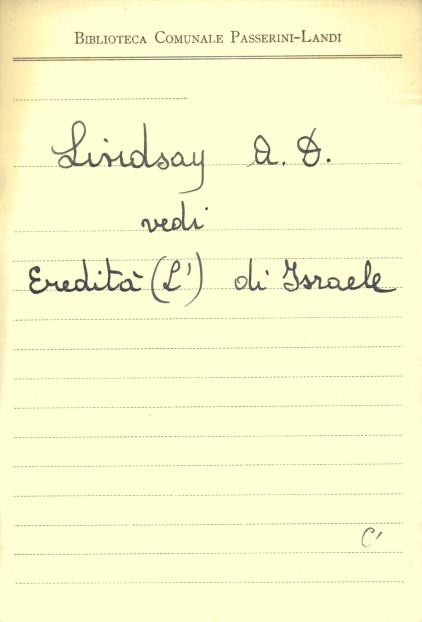 BIBLIOTECA COMUNALE PASSERINI-LANDI
Lindsay A. D.
vedi
Eredità (L') di Israele
C'